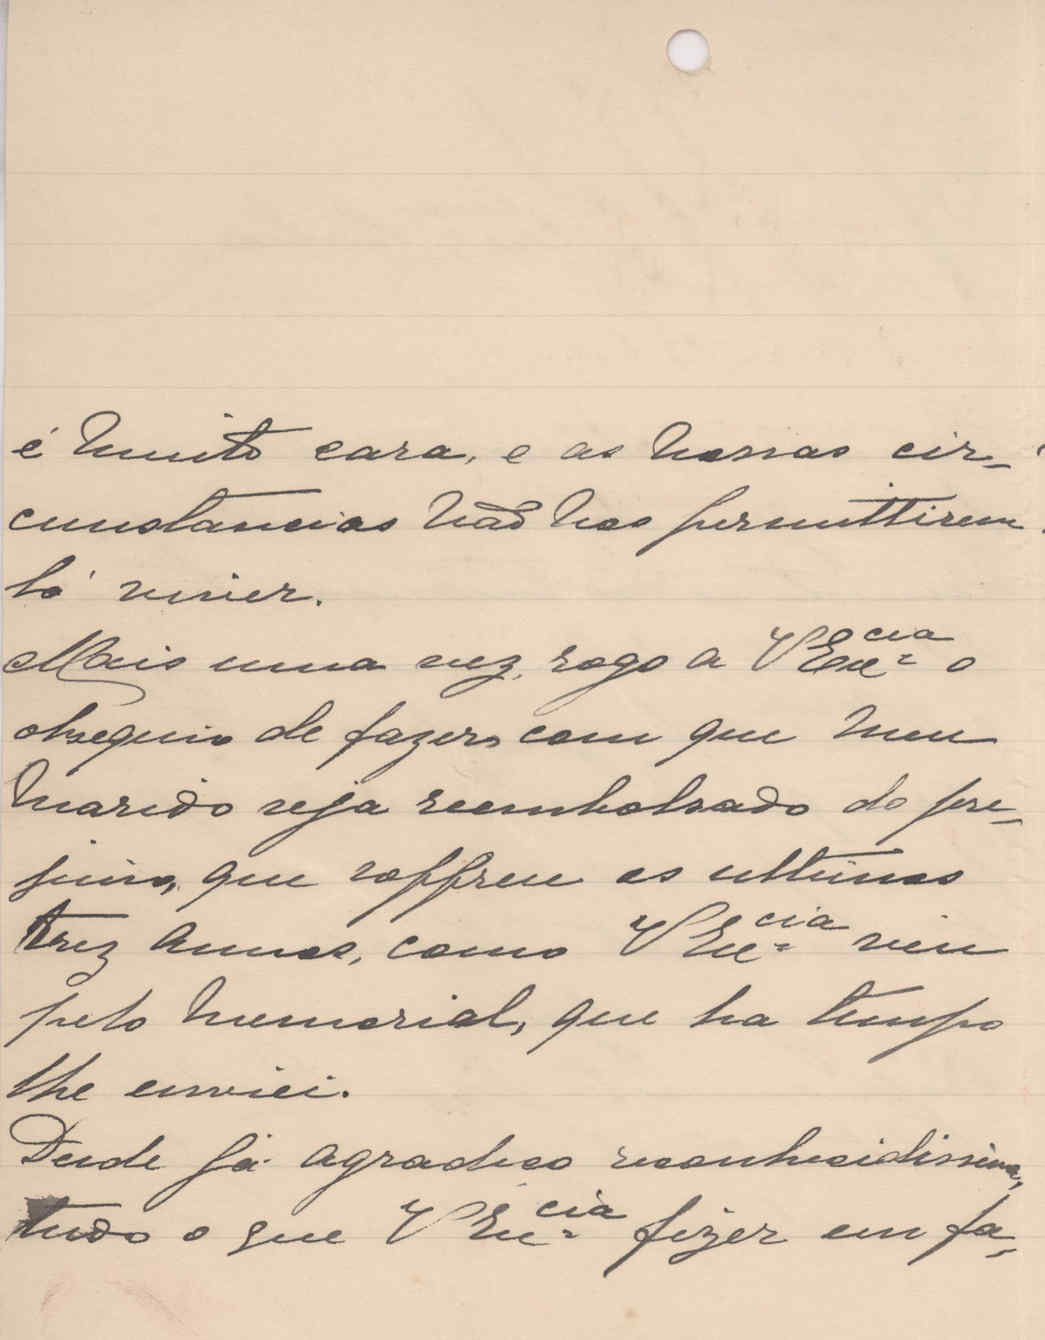 é muito cara, e as nossas cir-
cunstancias não nos permittirem
lá viver.
Mais uma vez, rogo a V Ex.cia o
obsequio de fazer, com que meu
marido seja reembolsado do pre-
juiso, que soffreu os ultimos
trez annos, como V Ex.cia viu
pelo memorial, que ha tempo
lhe enviei.
Desde já agradeço reconhecidissima,
tudo o que V Ex.cia fizer em fa-